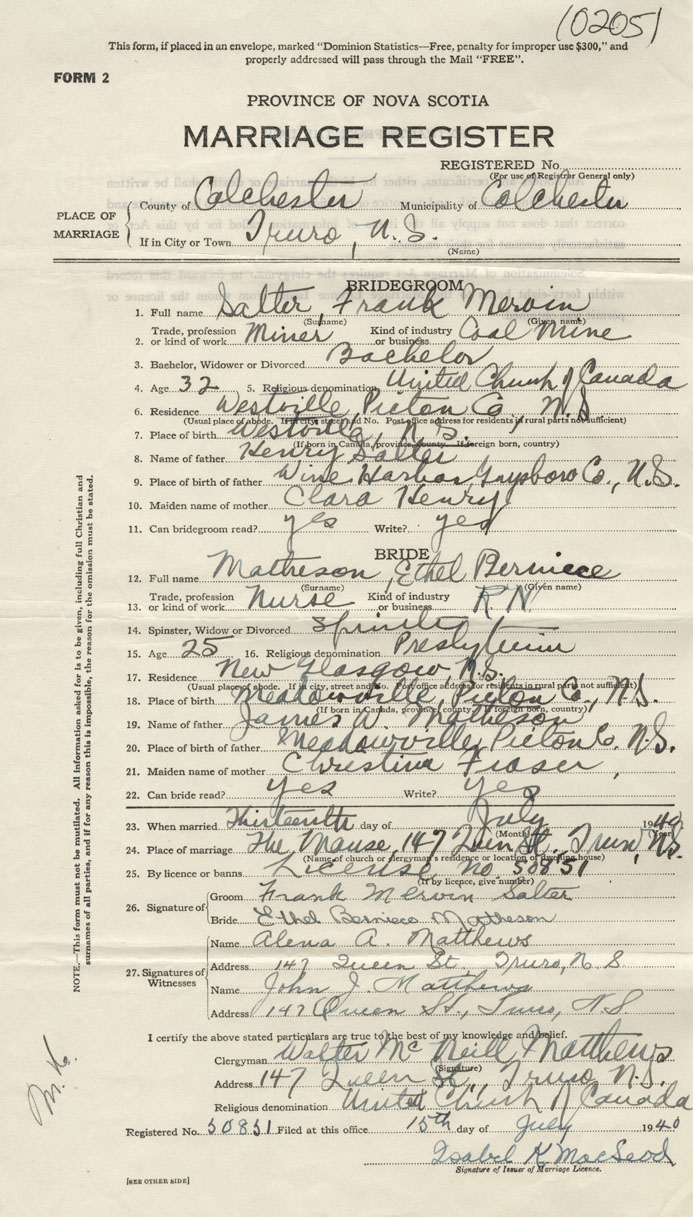 (0205)
This form, if placed in an envelope, marked "Dominion Statistics—Free, penalty for improper use $300," and
properly addressed will pass through the Mail "FREE".
FORM 2
PROVINCE OF NOVA SCOTIA
MARRIAGE REGISTER
REGISTERED No.
(For use of Registrar General only)
PLACE OF MARRIAGE { County of Colchester Municipality of Colchester
If in City or Town Truro, N.S.
(Name)
BRIDEGROOM
1. Full name Salter, Frank Mervin
(Surname) (Given name)
2. Trade, profession or kind of work Miner Kind of industry or business Coal Mine
3. Bachelor, Widower or Divorced Bachelor
4. Age 32 5. Religious denomination United Church of Canada
6. Residence Westville, Picton Co., N.S
(Usual place of abode. If in city, street and No. Post office address for residents in rural parts not sufficient)
7. Place of birth Westville, N.S.
(If born in Canada, province, county. If foreign born, country)
8. Name of father Henry Salter
9. Place of birth of father Wine Harbor Guysboro Co., N.S.
10. Maiden name of mother Clara Henry
11. Can bridegroom read? yes Write? yes
BRIDE
12. Full name Matheson, Ethel Berniece
(Surname) (Given name)
13. Trade, profession or kind of work Nurse Kind of industry or business R.N
14. Spinster, Widow or Divorced Spinster
15. Age 25 16. Religious denomination Presbyterian
17. Residence New Glasgow, N.S.
(Usual place of abode. If in city, street and No. Post office address for residents in rural parts not sufficient)
18. Place of birth Meadowville, Picton Co., N.S.
(If born in Canada, province, county. If foreign born, country)
19. Name of father James W. Matheson
20. Place of birth of father Meadowville, Picton Co. N.S.
21. Maiden name of mother Christina Fraser
22. Can bride read? yes Write? yes
23. When married Thirteenth day of July 1940
(Month) (Year)
24. Place of marriage The Manse, 147 Queen St. Truro, N.S.
(Name of church or clergyman's residence or location of dwelling house)
25. By licence or banns License no 50851
(If by licence, give number)
26. Signature of { Groom Frank Mervin Salter
Bride Ethel Berniece Matheson
27. Signatures of Witnesses { Name Alena A. Matthews
Address 147 Queen St. Truro, N S
Name John J. Matthews
Address 147 Queen St., Truro, N.S
I certify the above stated particulars are true to the best of my knowledge and belief.
Clergyman Walter McNeill Matthews
(Signature)
Address 147 Queen St., Truro N.S.
Religious denomination United Church of Canada
Registered No. 50851 Filed at this office 15th day of July 1940
Isabel K MacLeod
Signature of Issuer of Marriage Licence.
[SEE OTHER SIDE]
NOTE.—This form must not be mutilated. All information asked for is to be given, including full Christian and
surnames of all parties, and if for any reason this is impossible, the reason for the omission must be stated.